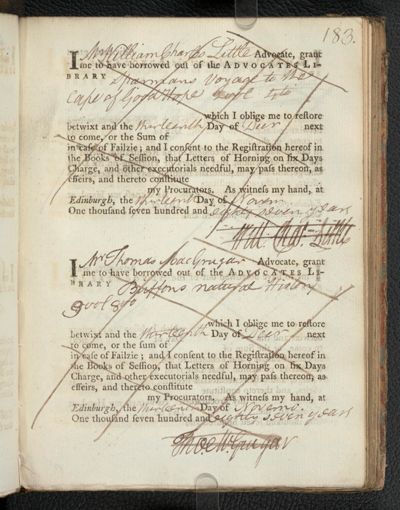 183.
I Mr William Charles Little Advocate, grant
me to have borrowed out of the ADVOCATES LI-
BRARY Sparmans Voyage to the
Cape of Good Hope
which I oblige me to restore
betwixt and the thirteenth Day of Decr next
to come, or the Sum of
in case of Failzie; and I consent to the Registration hereof in
the Books of Session, that Letters of Horning on six Days
Charge, and other executorials needful, may pass thereon, as
effeirs, and thereto constitute
my Procurators. As witness my hand, at
Edinburgh, the thirteenth Day of Novem.
One thousand seven hundred and eighty seven years
Will. Chas. Little
I Mr Thomas MacGrugar Advocate, grant
me to have borrowed out of the ADVOCATES LI-
BRARY Buffons natural History
which I oblige me to restore
betwixt and the thirteenth Day of Decr next
to come, or the sum of
in case of Failzie; and I consent to the Registration hereof in
the Books of Session, that Letters of Horning on six Days
Charge, and other executorials needful, may pass thereon, as
effeirs, and thereto constitute
my Procurators. As witness my hand, at
Edinburgh, the thirteenth Day of Novemr.
One thousand seven hundred and eighty seven years
Tho. McGrugar